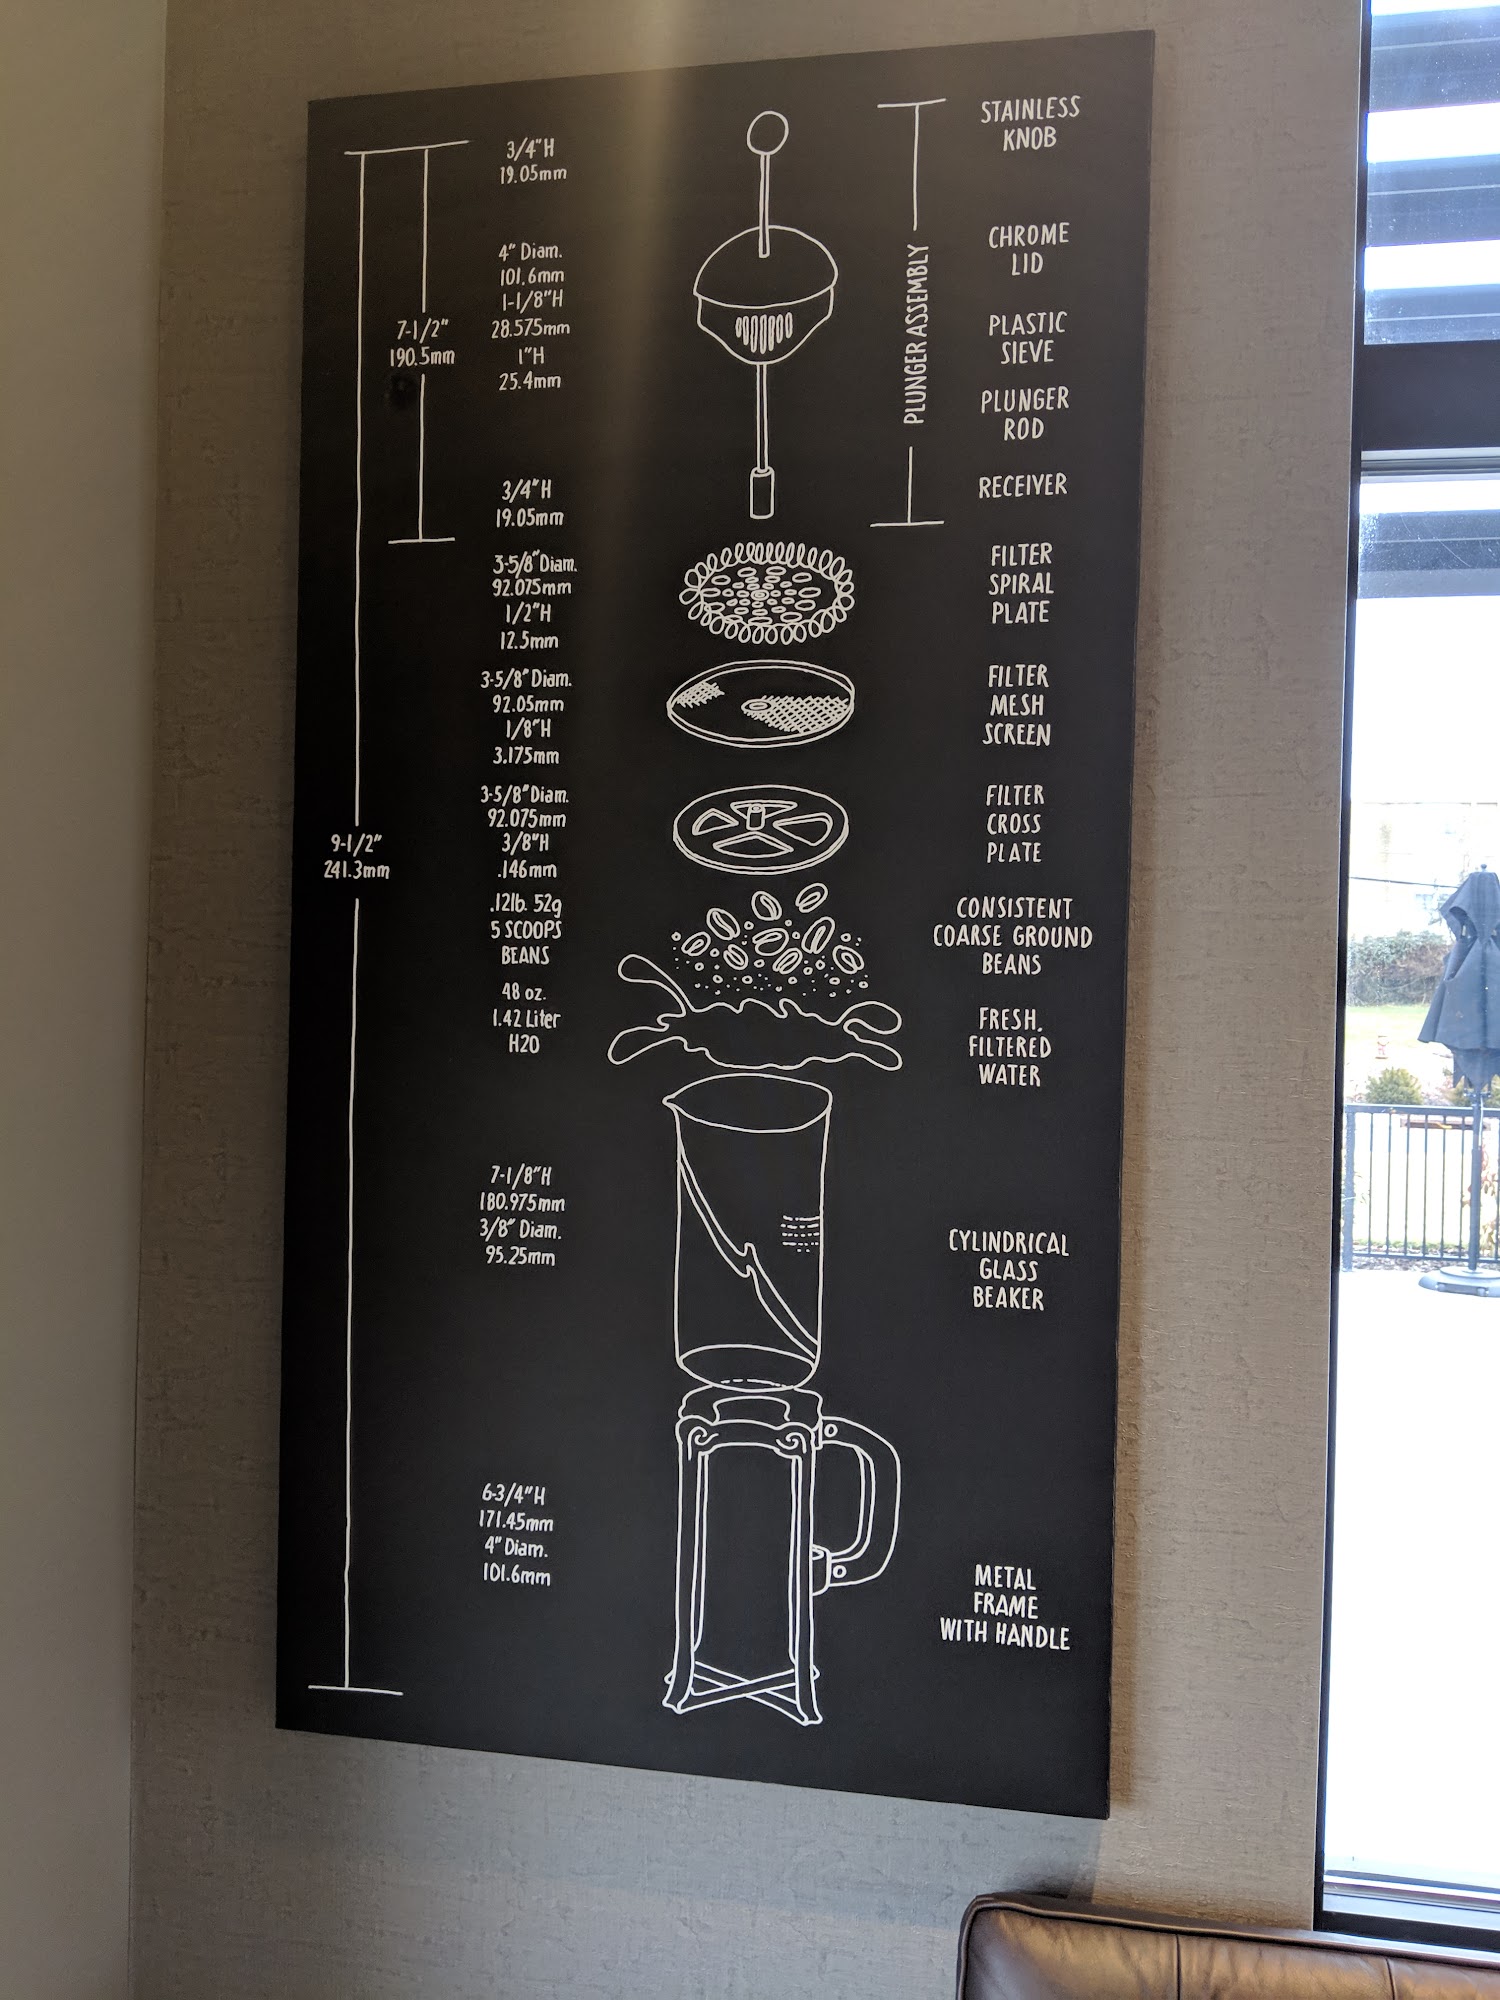 3/4"H
19.05mm
4" Diam.
101.6mm
1-1/8"H
28.575mm
1"H
25.4mm
7-1/2"
190.5mm
3/4"H
19.05mm
3-5/8" Diam.
92.075mm
1/2"H
12.5mm
3-5/8" Diam.
92.05mm
1/8"H
3.175mm
3-5/8" Diam.
92.075mm
3/8"H
.146mm
9-1/2"
241.3mm
.12lb. 52g
5 SCOOPS
BEANS
48 oz.
1.42 Liter
H20
7-1/8"H
180.975mm
3/8" Diam.
95.25mm
6-3/4"H
171.45mm
4" Diam.
101.6mm
PLUNGER ASSEMBLY
STAINLESS
KNOB
CHROME
LID
PLASTIC
SIEVE
PLUNGER
ROD
RECEIVER
FILTER
SPIRAL
PLATE
FILTER
MESH
SCREEN
FILTER
CROSS
PLATE
CONSISTENT
COARSE GROUND
BEANS
FRESH,
FILTERED
WATER
CYLINDRICAL
GLASS
BEAKER
METAL
FRAME
WITH HANDLE